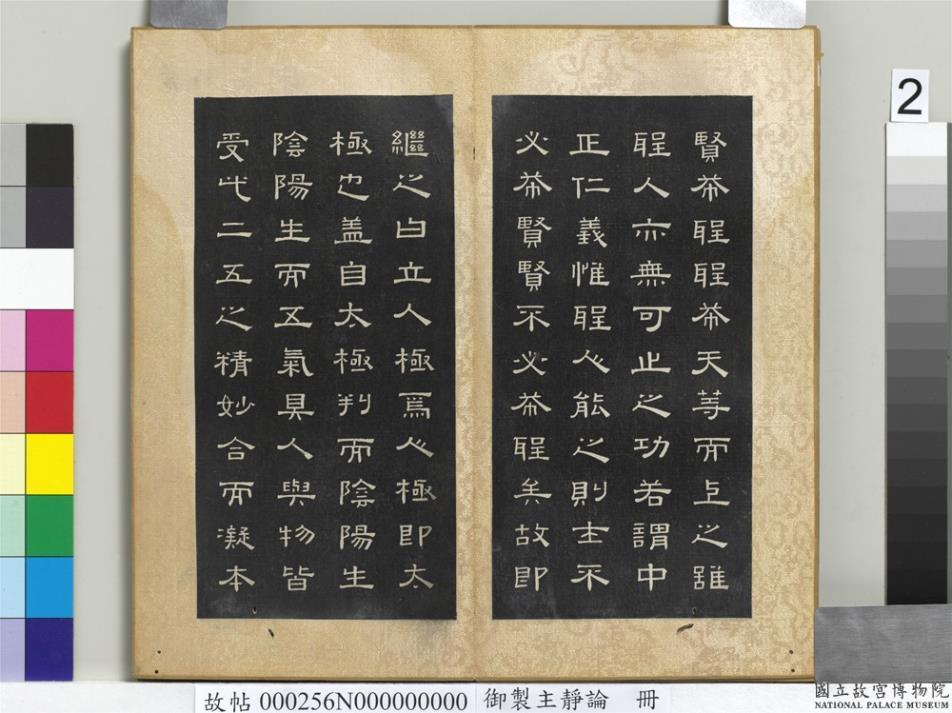 賢希聖聖希天等而上之雖
聖人亦無可止之功若謂中
正仁義惟聖人能之則士不
必希賢賢不必希聖矣故即
繼之曰立人極焉人極即太
極也蓋自太極判而陰陽生
陰陽生而五氣具人與物皆
受此二五之精妙合而凝本
2
故帖 000256N000000000 御製主靜論 冊
國立故宮博物院
NATIONAL PALACE MUSEUM